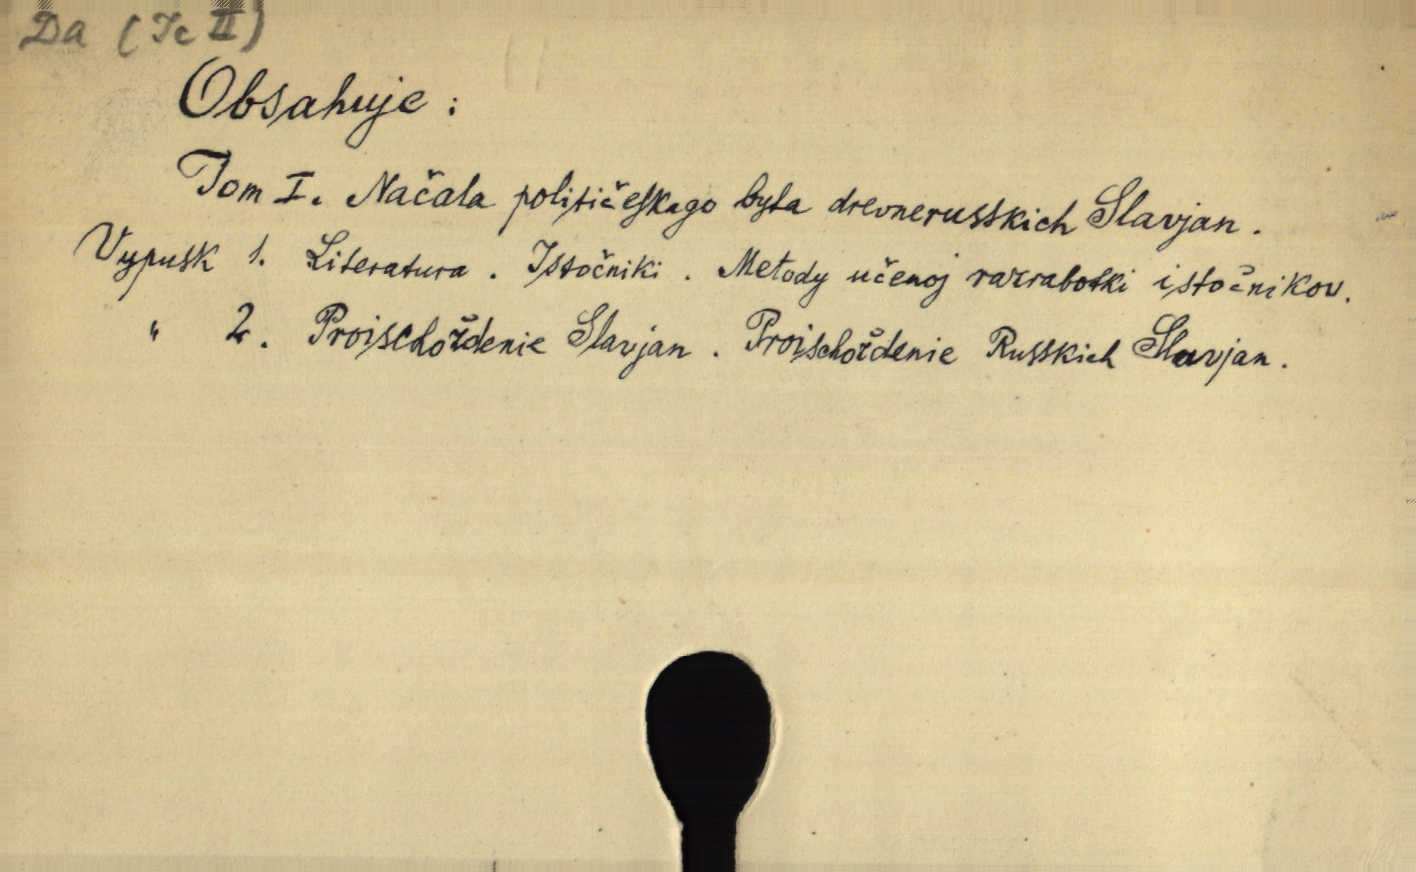 Da (Ic II)
Obsahuje :
Tom I. Načala političeskago byta drevnerusskich Slavjan.
Vypusk 1. Literatura. Istočniki. Metody učenoj razrabotki istočnikov.
" 2. Proischoždenie Slavjan. Proischoždenie Russkich Slavjan.